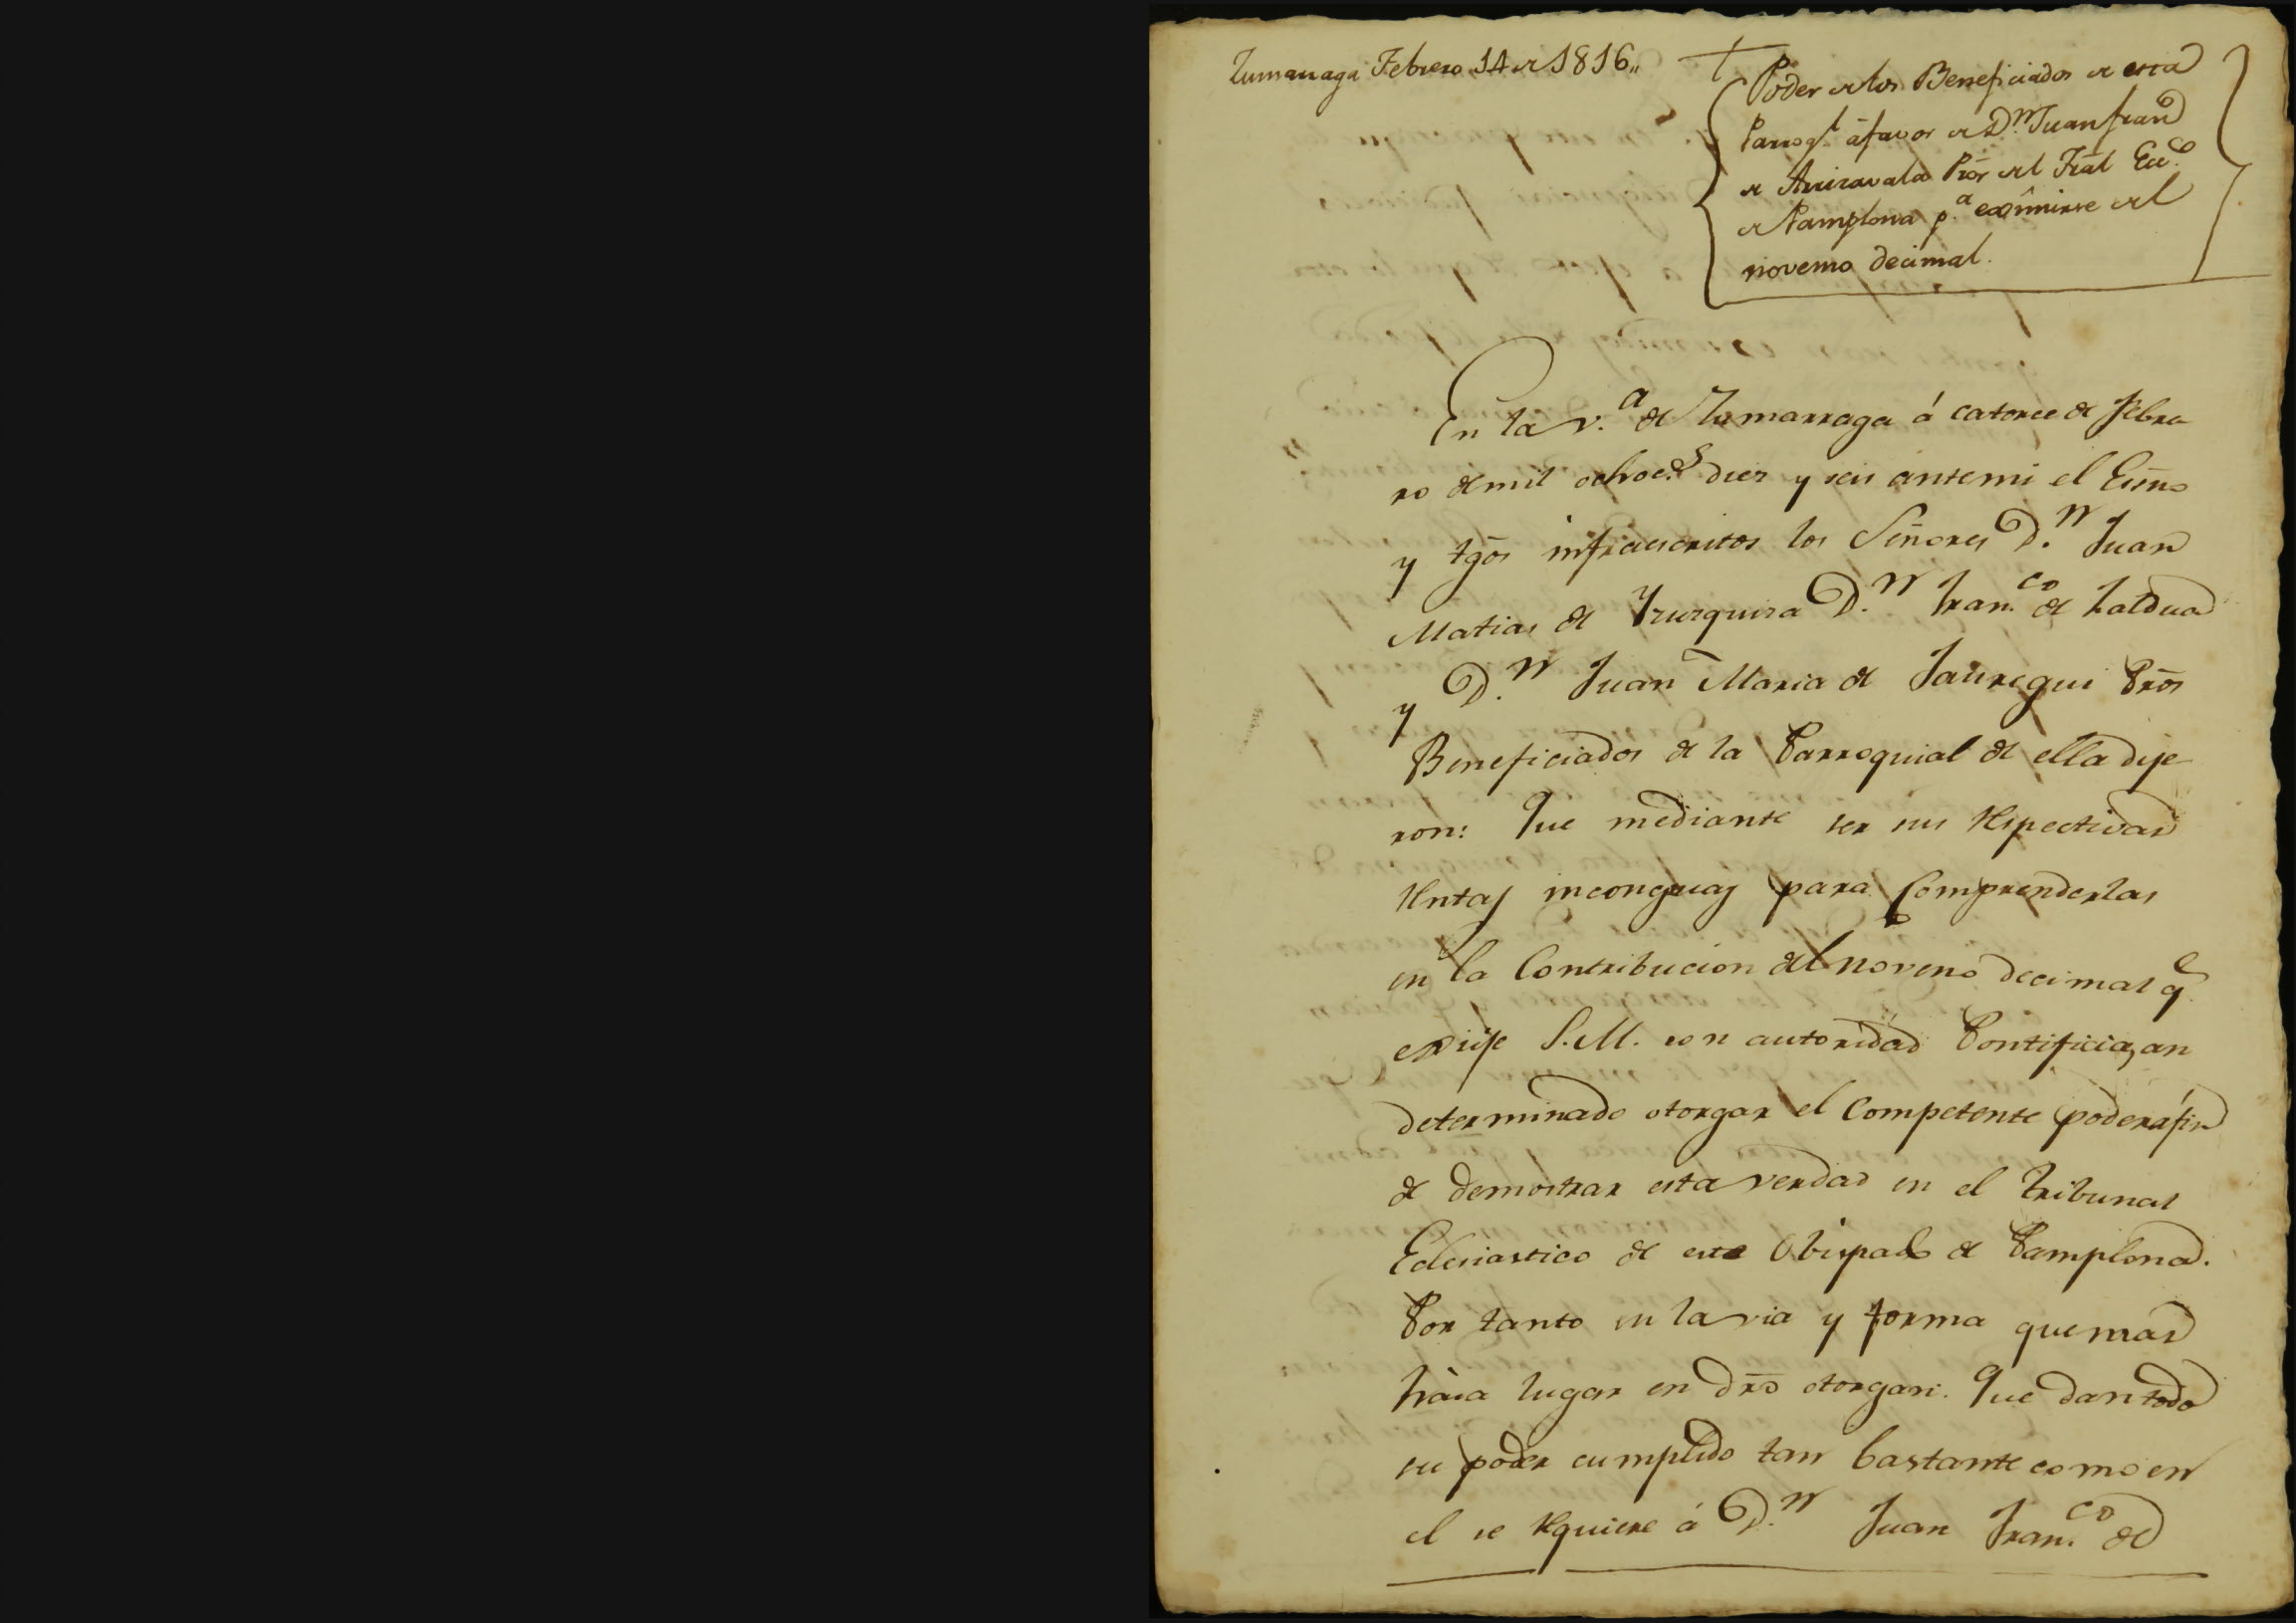 Zumarraga Febrero 14 de 1816,,
Poder de los Beneficiados de esta
Parroql. á favor de Dn. Juan Franco
de Arrizavala Pror del Tral Ecco.
de Pamplona pa. exîmirse del
noveno decimal.
En la v.a de Zumarraga á catorce de Febre
ro de mil ochoc.s diez y seis ante mi el Esno
y tgōs infraescritos los Señores D.n Juan
Matias de Yzuzquiza D.n Fran.co de Zaldua
y D.n Juan Maria de Jauregui Prōs
Beneficiados de la Parroquial de ella dije
ron: Que mediante ser sus Respectivas
Rentas incongruas para Comprenderlas
en la Contribucion del noveno decimal q.e
exije S.M. con autoridad Pontificia, an
determinado otorgar el Competente poder á fin
de demostrar esta verdad en el Tribunal
Eclesiastico de este Obispado de Pamplona.
Por tanto en la via y forma que mas
haia lugar en drō otorgan: Que dan todo
su poder cumplido tan bastante como en
el se Requiere á D.n Juan Fran.co de